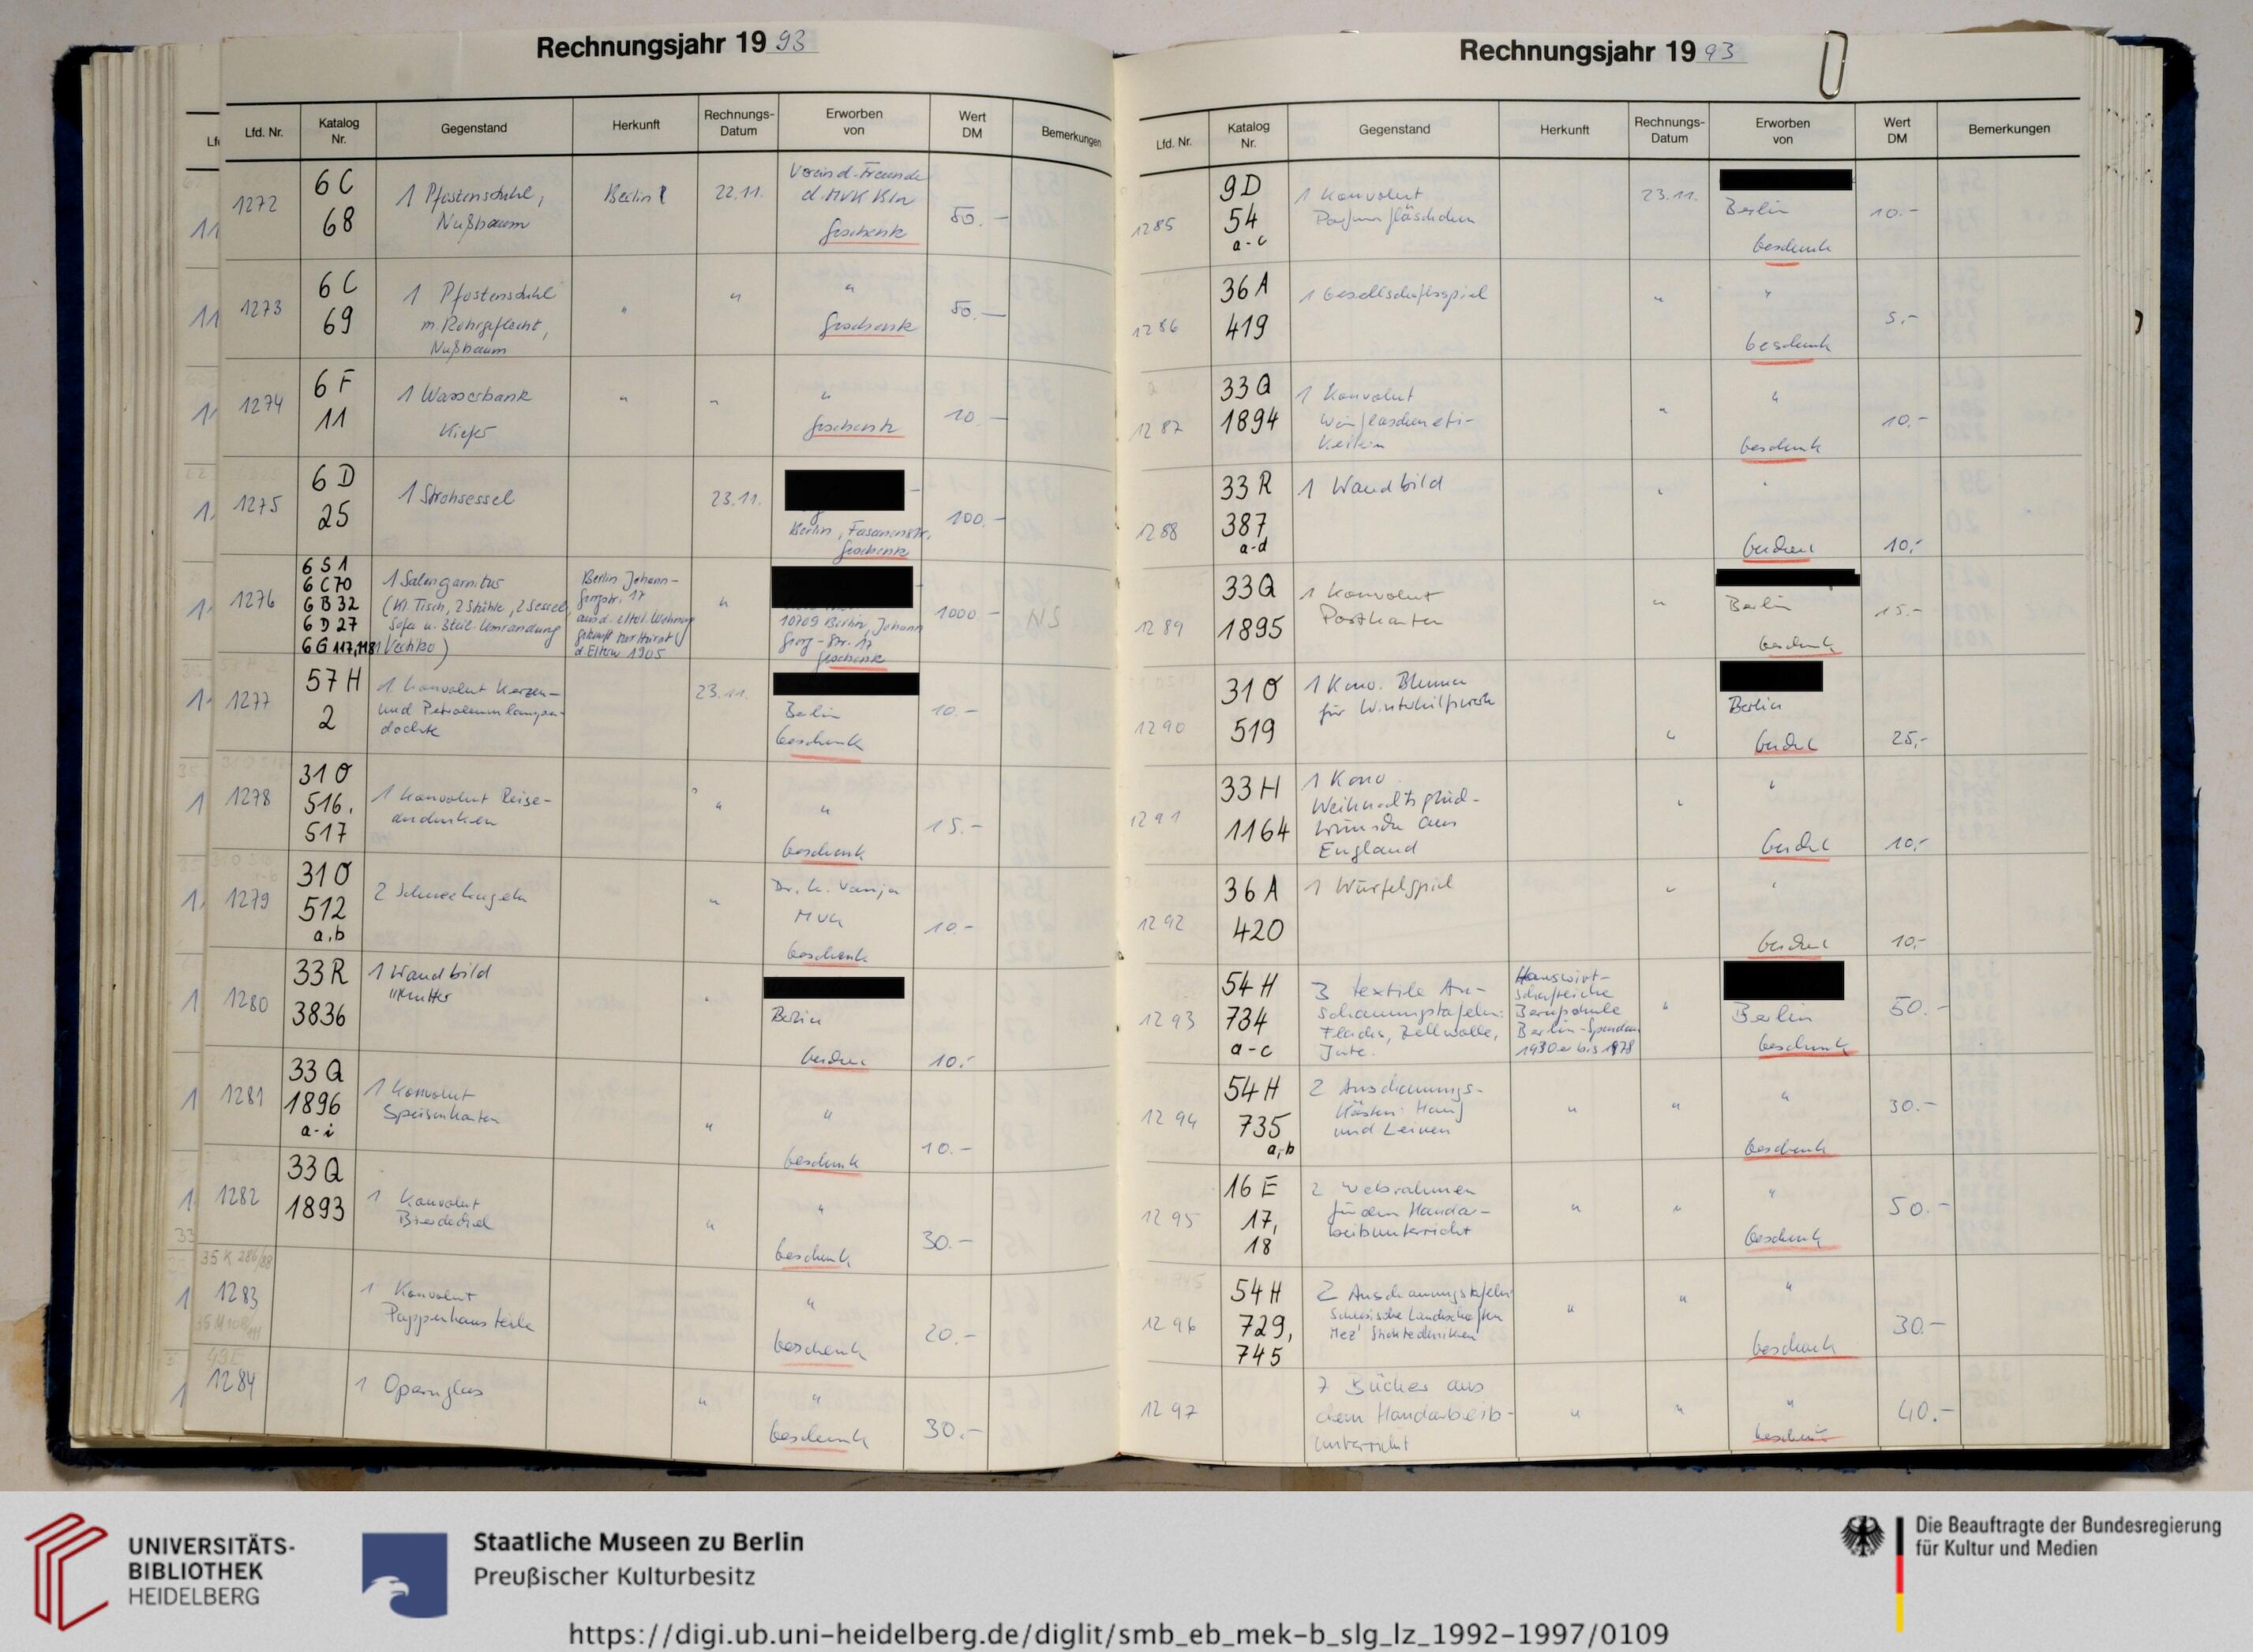 Rechnungsjahr 1993
Lfd. Nr. Katalog Nr. Gegenstand Herkunft Rechnungs-Datum Erworben von Wert DM Bemerkungen
1272 6 C 68 1 Pfostenstuhl, Nußbaum Berlin 22.11. Verein d. Freunde d. MVK Bln Geschenk 50.—
1273 6 C 69 1 Pfostenstuhl m Rohrgeflecht, Nußbaum " " " Geschenk 50.—
1274 6 F 11 1 Wasserbank Kiefer " " " Geschenk 10.—
1275 6 D 25 1 Strohsessel 23.11. Berlin, Fasanenstr. Geschenk 100.—
1276 6 S 1 6 C 70 6 B 32 6 D 27 6 G 117,118 1 Salongarnitur (Kl. Tisch, 2 Stühle, 2 Sessel, Sofa u. 3teil. Umrandung Vertiko) Berlin Johann-Georgstr. 17 aus d. eltal. Wohnung gekauft zur Heirat d. Eltern 1905 " 10709 Berlin, Johann Georg-Str. 17 Geschenk 1000— NS
1277 57 H 2 1 Konvolut Kerzen- und Petroleumlampen- dochte 23.11. Berlin Geschenk 10.—
1278 31 O 516, 517 1 Konvolut Reise- andenken " " Geschenk 15.—
1279 31 O 512 a,b 2 Schneekugeln " Dr. K. Vanja MVK Geschenk 10.—
1280 33 R 3836 1 Wandbild "Mutter " Berlin Geschenk 10.-
1281 33 Q 1896 a-i 1 Konvolut Speisenkarten " " Geschenk 10.—
1282 33 Q 1893 1 Konvolut Bierdeckel " " Geschenk 30.—
35 K 286/88
1283 1 Konvolut Papphausteile " Geschenk 20.—
1284 1 Opernglas " " Geschenk 30.—
Rechnungsjahr 1993
Lfd. Nr. Katalog Nr. Gegenstand Herkunft Rechnungs-Datum Erworben von Wert DM Bemerkungen
1285 9 D 54 a-c 1 Konvolut Parfumfläschchen 23.11. Berlin Geschenk 10.—
1286 36 A 419 1 Gesellschaftsspiel " " Geschenk 5,-
1287 33 Q 1894 1 Konvolut Weinflascheneti- ketten " " Geschenk 10.—
1288 33 R 387 a-d 1 Wandbild " " Geschenk 10,-
1289 33 Q 1895 1 Konvolut Postkarten " Berlin Geschenk 15.—
1290 31 O 519 1 Konv. Blumen für Winterhilfswerk " Berlin Geschenk 25,-
1291 33 H 1164 1 Konv Weihnachtsglück- wünsche aus England " " Geschenk 10,-
1292 36 A 420 1 Würfelspiel " " Geschenk 10,-
1293 54 H 734 a-c 3 textile An- schauungstafeln: Flachs, Zellwolle, Jute. Hauswirt- schaftliche Berufsschule Berlin-Spandau 1930er bis 1978 " Berlin Geschenk 50.—
1294 54 H 735 a,b 2 Anschauungs- kästen: Hanf und Leinen " " " Geschenk 30.—
1295 16 E 17, 18 2 Webrahmen für den Handar- beitsunterricht " " " Geschenk 50.—
1296 54 H 729, 745 2 Anschauungstafeln Mez' Sticktechniken " " " Geschenk 30.—
1297 7 Bücher aus dem Handarbeits- unterricht " " " Geschenk 40.—
UNIVERSITÄTS-
BIBLIOTHEK
HEIDELBERG
Staatliche Museen zu Berlin
Preußischer Kulturbesitz
Die Beauftragte der Bundesregierung
für Kultur und Medien
https://digi.ub.uni-heidelberg.de/diglit/smb_eb_mek-b_slg_lz_1992-1997/0109